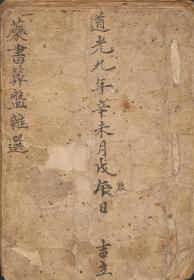 道光九年辛未月戊辰日 吉立
辰
書算盤雜選